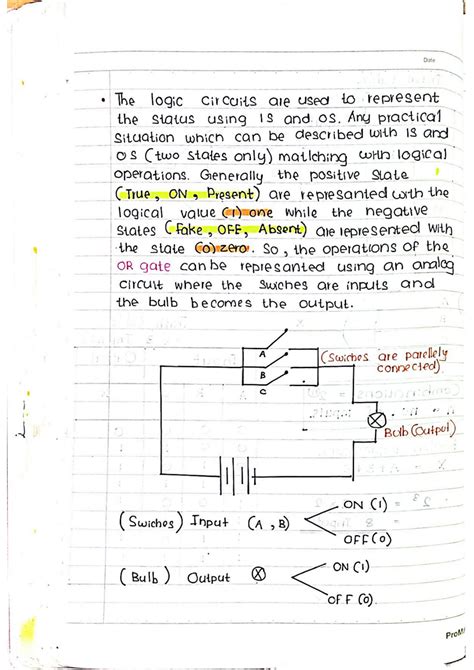 Date
• The logic circuits are used to represent
the status using 1S and 0S. Any practical
Situation which can be described with 1S and
0S (two states only) matching with logical
operations. Generally the positive state
(True, ON, Present) are represanted with the
logical value (1) one while the negative
States (Fake, OFF, Absent) are represented with
the state (0) zero. So, the operations of the
OR gate can be represanted using an analog
circuit where the Swiches are inputs and
the bulb becomes the output.
A
B
C
(Swiches are parellely
connected)
Bulb (Output)
(Swiches) Input (A, B)
ON (1)
OFF (0)
(Bulb) Output
ON (1)
OFF (0)